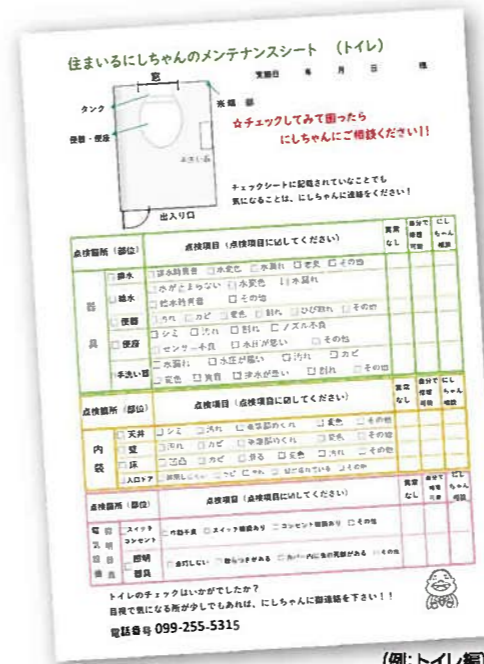 住まいるにしちゃんのメンテナンスシート （トイレ）
実施日 年 月 日 様
窓
タンク
便器・便座
手洗い器
出入り口
☆チェックしてみて困ったら
にしちゃんにご相談ください！！
チェックシートに記載されていなことでも
気になることは、にしちゃんに連絡をください！
点検箇所（部位） 点検項目（点検項目に☑してください） 異常なし 自分で修理可能 にしちゃん相談
器具
□排水 □排水時異音 □水変色 □水漏れ □悪臭 □その他
□給水 □水が止まらない □水変色 □水漏れ
□給水時異音 □その他
□便器 □汚れ □カビ □変色 □割れ □ひび割れ □その他
□便座 □シミ □汚れ □割れ □ノズル不良
□センサー不良 □水圧が悪い □その他
□手洗い器 □水漏れ □水圧が悪い □汚れ □カビ
□変色 □異音 □排水が悪い □割れ □その他
点検箇所（部位） 点検項目（点検項目に☑してください） 異常なし 自分で修理可能 にしちゃん相談
内装
□天井 □シミ □汚れ □変色 □その他
□壁 □汚れ □カビ □変色 □その他
□床 □凹凸 □カビ □滑る □変色 □汚れ □その他
□入口ドア □その他
点検箇所（部位） 点検項目（点検項目に☑してください） 異常なし 自分で修理可能 にしちゃん相談
□スイッチ コンセント □作動不良 □スイッチ破損あり □コンセント破損あり □その他
□照明器具 □点灯しない □散らつきがある □カバー内に虫の死骸がある □その他
トイレのチェックはいかがでしたか？
目視で気になる所が少しでもあれば、にしちゃんに御連絡を下さい！！
電話番号 099-255-5315
(例:トイレ編)